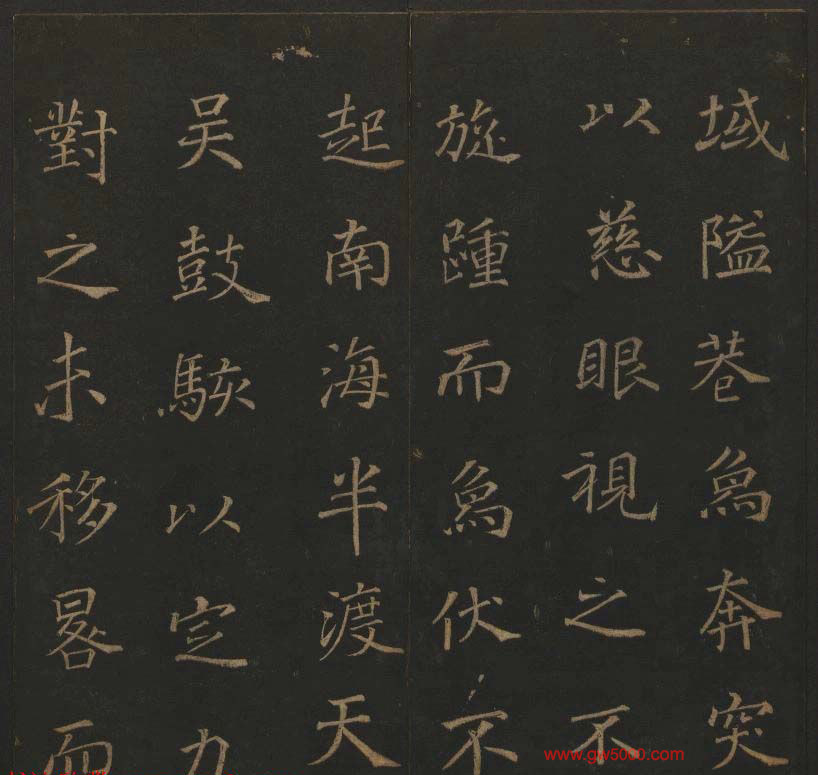 域隘巷為奔突
以慈眼視之不
旋踵而為伏不
起南海半渡天
吴鼓駭以定力
對之未移畧而
www.gw5000.com